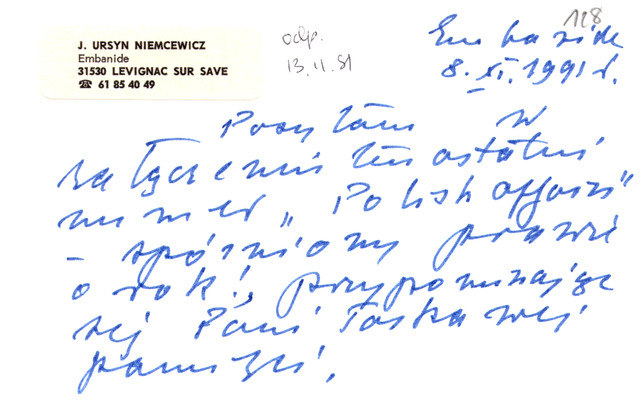 J. URSYN NIEMCEWICZ
Embanide
31530 LEVIGNAC SUR SAVE
☎ 61 85 40 49
odp.
13.11.91
Embanide
8.XI.1991 r.
Posyłam w
załączeniu ten ostatni
numer „Polish affairs”
– spóźniony prawie
o rok!, przypominając
się Pani łaskawej
pamięci.